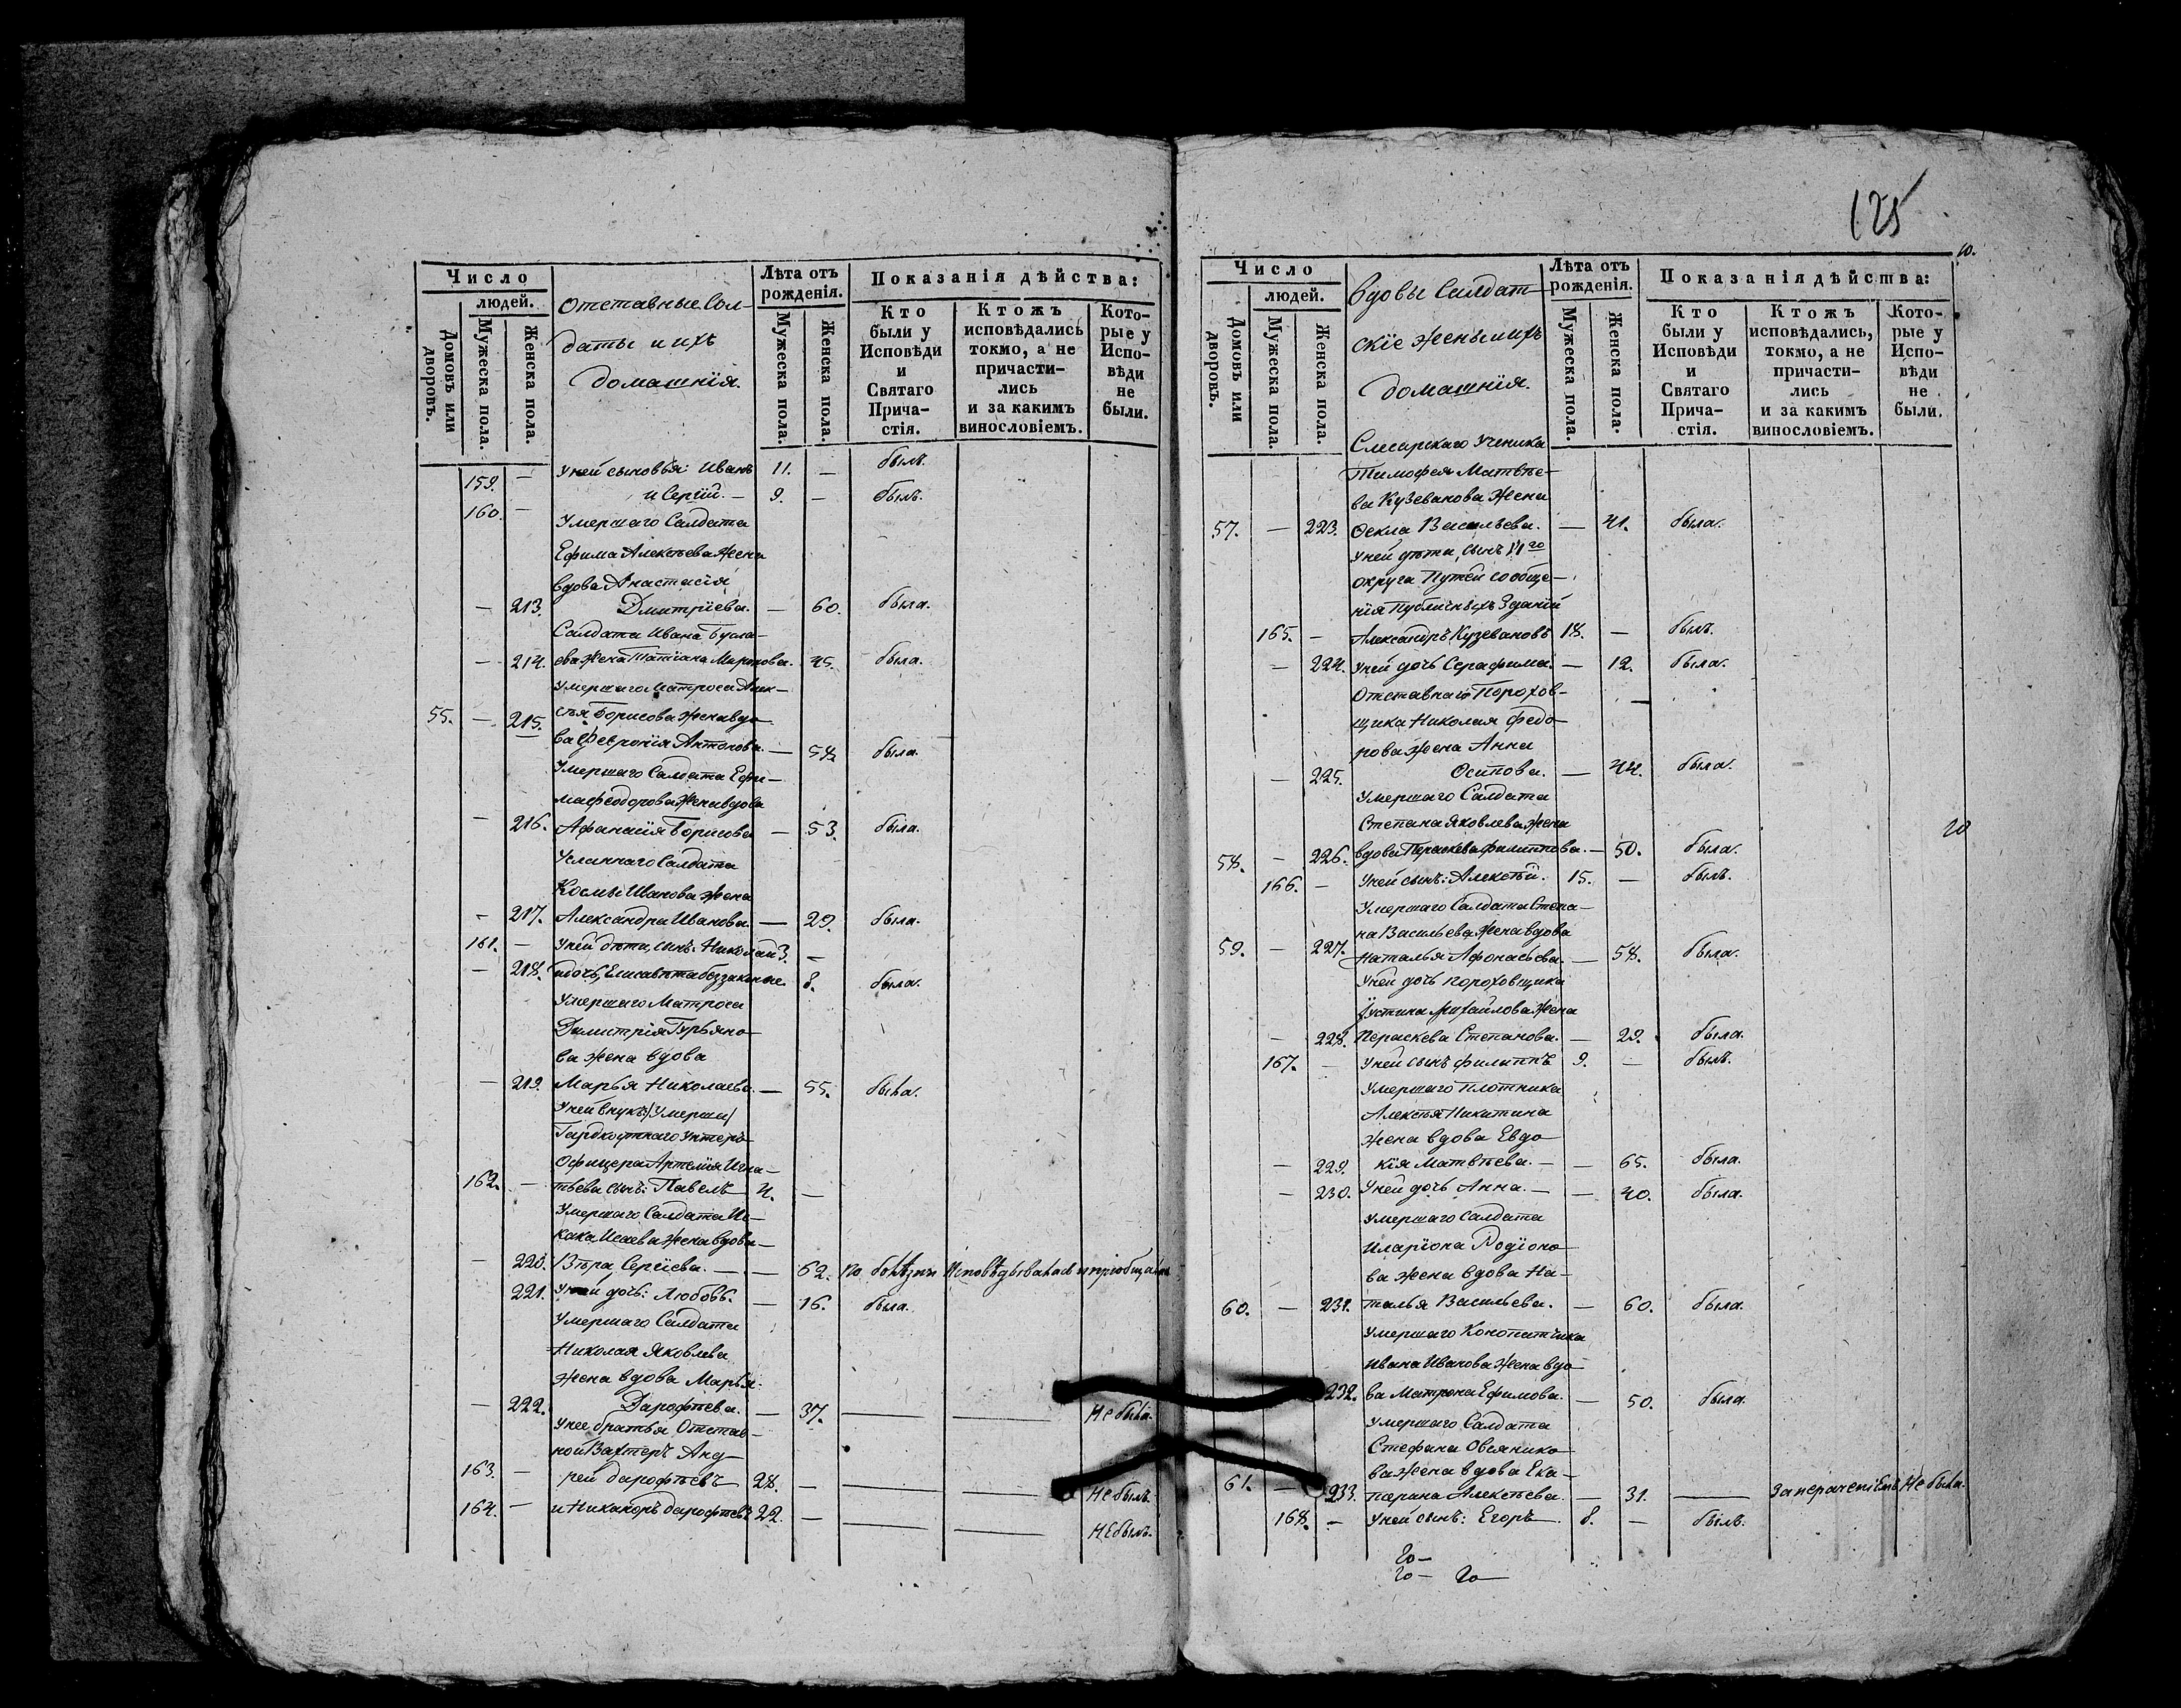 125
10.
Число
людей.
Домовъ или дворовъ.
Мужеска пола.
Женска пола.
Отставные Сол-
даты и ихъ
домашнія.
Лѣта отъ рожденія.
Мужеска пола.
Женска пола.
Показанія дѣйства:
Кто были у Исповѣди и Святаго Прича- стія.
Ктожъ исповѣдались токмо, а не причасти- лись и за какимъ винословіемъ.
Кото- рые у Испо- вѣди не были.
159. — У ней сыновья: Иванъ 11. — былъ.
160. — и Сергій. — 9. — былъ.
Умершаго Салдата
Ефима Алексѣева жена
вдова Анастасія
— 213. Дмитріева. — 60. была.
Салдата Ивана
— 214. ева жена Татіана Миронова. 45. была.
Умершаго Матроса Алек-
55. — 215. сѣя Борисова жена вдо-
ва Февронія Антонова. — 58. была.
Умершаго Салдата Ефи-
ма Феодорова жена вдова
— 216. Афанасія Борисова — 53. была.
Усланнаго Салдата
Космы Иванова жена
— 217. Александра Иванова. — 29. была.
161. — У ней дѣти, сынъ: Николай 3. —
— 218. и дочь, Елисавета беззаконные. 8. была.
Умершаго Матроса
Димитрія Гурьяно-
ва жена вдова
— 219. Марья Николаева. — 55. была.
У ней внукъ /умерша/
Унтеръ-
Офицера Артемія Игна-
162. — тьева сынъ: Павелъ 4. —
Умершаго Салдата Ис-
аака Исаева жена вдова —
— 220. Вѣра Сергіева. — — 62. по болѣзни исповѣдывалась и пріобщалась
221. У ней дочь: Любовь. — 16. была.
Умершаго Салдата
Николая Яковлева
жена вдова Марья
— 222. Дарофѣева. — 37. — — Не была.
У нее братья Отстав-
ной Вахтеръ Анд-
163. — рей Дарофѣевъ 28. — — — Не былъ.
164. — и Никаноръ Дарофѣевъ 22. — — — Не былъ.
Число
людей.
Домовъ или дворовъ.
Мужеска пола.
Женска пола.
Вдовы Салдат-
скіе жены и ихъ
домашнія.
Лѣта отъ рожденія.
Мужеска пола.
Женска пола.
Показанія дѣйства:
Кто были у Исповѣди и Святаго Прича- стія.
Ктожъ исповѣдались, токмо, а не причасти- лись и за какимъ винословіемъ.
Кото- рые у Испо- вѣди не были.
Слесарскаго Ученика
Тимофея Матвѣе-
ва Кузеванова жена
57. — 223. Фекла Васильева. — 41. была.
У ней дѣти, сынъ VI го
округа Путей сообще-
нія Публичныхъ Зданій
165. — Александръ Кузевановъ 18. — былъ.
— 224. У ней дочь Серафима. — 12. была.
Отставнаго Порохов-
щика Николая Федо-
рова жена Анна
— 225. Осипова. — 44. была.
Умершаго Салдата
Степана Яковлева жена
58. — 226. вдова Пераскева Филиппова. — 50. была.
166. — У ней сынъ: Алексѣй. 15. — былъ.
Умершаго Салдата Степа-
на Васильева жена вдова
59. — 227. Наталья Афонасьева. — 58. была.
У ней дочь пороховщика
Устина Михайлова жена
— 228. Пераскева Степанова. — 29. была.
167. — У ней сынъ Филиппъ 9. — былъ.
Умершаго плотника
Алексѣя Никитина
жена вдова Евдо-
— 229. кія Матвѣева. — — 65. была.
— 230. У ней дочь Анна. — — 40. была.
Умершаго Салдата
Иларіона Родіоно-
ва жена вдова На-
60. — 231. талья Васильева. — 60. была.
Умершаго Конопатчика
Ивана Иванова жена вдо-
232. ва Матрона Ефимова. — 50. была.
Умершаго Салдата
Стефана Овсянико-
ва жена вдова Ека-
61. — 233. терина Алексѣева. — 31. — Не была.
168. — У ней сынъ: Егоръ. 8. — былъ.
20
20 —
20 — 20 —